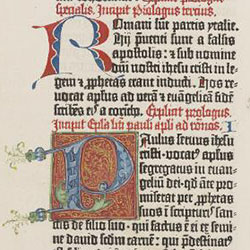 specialis. Incipit Prologus tercius.
Romani sūt partis ytalie.
Hij p̄uenti sunt a falsis
apostolis: ⁊ sub nomine
dn̄i nostri ihesu cristi in le-
gem ⁊ ꝓphetas erant inducti. Hos re-
vocat apl̄us ad verā ⁊ euāgelicā fidē
scribēs eis a corītho. Explicit prologus.
Incipit Epl̄a bti pauli apl̄i ad romos. I.
Paulus seruus ihesu
cristi·vocatꝰ apl̄us
segregatus in euan-
geliū dei·qd̄ āte pro-
miserat per ꝓphetas
suos ī scripturis sanc-
tis de filio suo·qui factus ē ei ex semi-
ne david scd̄m carnē: qui p̄destinatꝰ